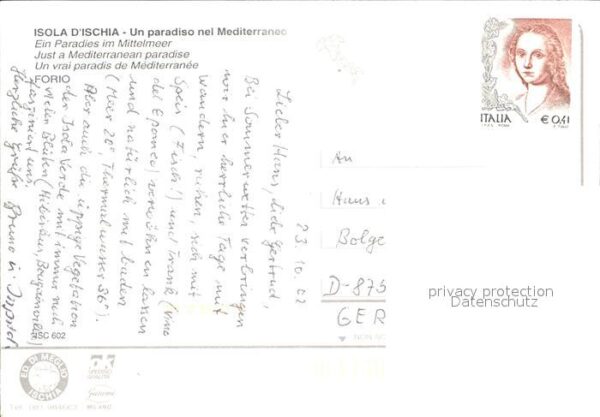 ISOLA D'ISCHIA - Un paradiso nel Mediterraneo
Ein Paradies im Mittelmeer
Just a Mediterranean paradise
Un vrai paradis de Méditerranée
FORIO
23.10.02
Lieber Hans, liebe Gertrud,
Bei Sommerwetter verbringen
wir hier herrliche Tage mit
Wandern, ruhen, sich mit
Speis (Fisch!) und Trank (vino
del Epomeo) verwöhnen lassen
und natürlich mit baden
(Meer 20°, Thermalwasser 36°).
Aber auch die üppige Vegetation
der Isola Verde mit immer noch
vielen Blüten (Hibiskus, Bougainvillea)
fasziniert uns.
Herzliche Grüße Bruno u.
ISC 602
ITALIA
€ 0,41
An
Hans u
Bolge
D-875
GER
privacy protection
Datenschutz
ED. DI MEGLIO
ISCHIA
MILANO